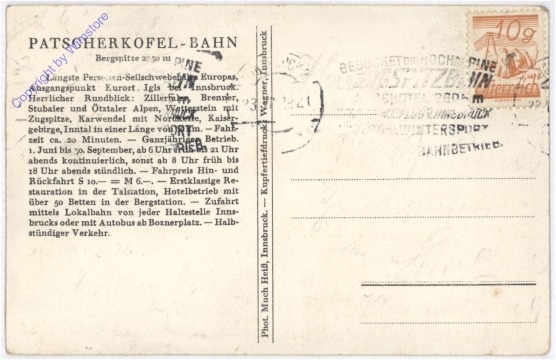 PATSCHERKOFEL-BAHN
Bergspitze 2250 m
Längste Personen-Seilschwebebahn Europas,
Ausgangspunkt Kurort Igls bei Innsbruck.
Herrlicher Rundblick: Zillertaler, Brenner,
Stubaier und Ötztaler Alpen, Wetterstein mit
Zugspitze, Karwendel mit Nordkette, Kaiser-
gebirge, Inntal in einer Länge von km. — Fahr-
zeit ca. 20 Minuten. — Ganzjähriger Betrieb.
1. Juni bis 30. September, ab 6 Uhr früh bis 21 Uhr
abends kontinuierlich, sonst ab 8 Uhr früh bis
18 Uhr abends stündlich. — Fahrpreis Hin- und
Rückfahrt S 10.— = M 6.—. — Erstklassige Re-
stauration in der Talstation, Hotelbetrieb mit
über 50 Betten in der Bergstation. — Zufahrt
mittels Lokalbahn von jeder Haltestelle Inns-
brucks oder mit Autobus ab Boznerplatz. — Halb-
stündiger Verkehr.
Copyright by Winstore
Phot. Much Heiß, Innsbruck. — Kupfertiefdruck: Wagner, Innsbruck
BESUCHET DIE HOCHALPINE
WINTERSPORT
BAHNBETRIEB.
10g